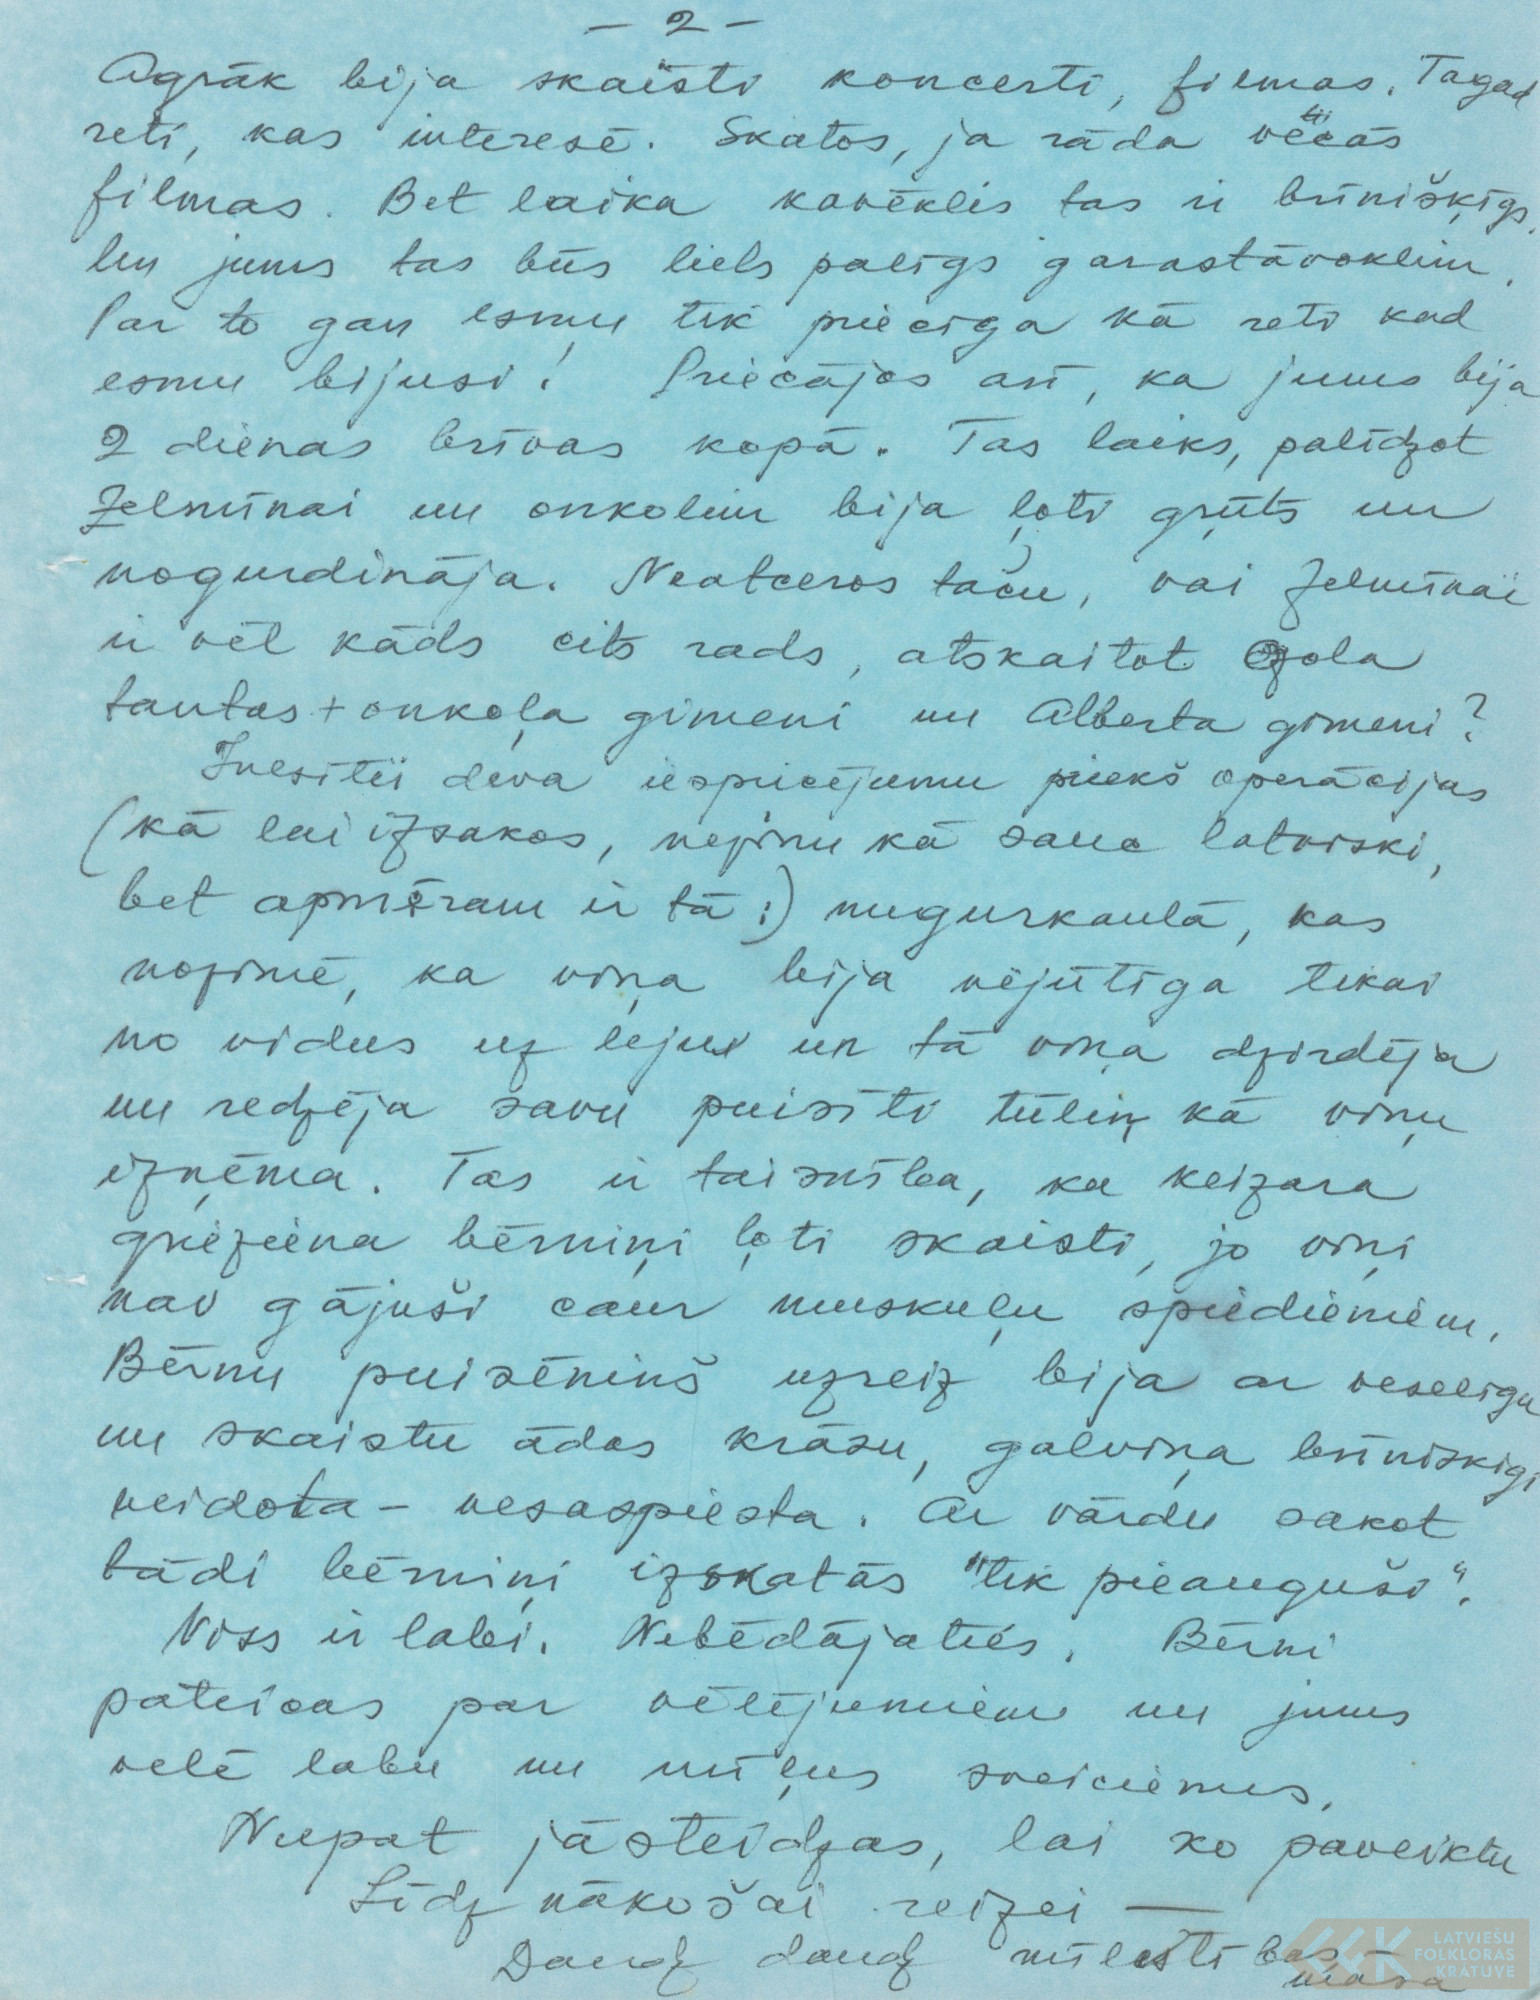 - 2 -
Agrāk bija skaisti koncerti, filmas. Tagad
reti, kas interesē. Skatos, ja rāda vēcās
filmas. Bet laika kavēklis tas ir brīnišķīgs,
un jums tas būs liels palīgs garastāvoklim.
Par to gan esmu tik priecīga kā reti kad
esmu bijusi! Priecājos arī, ka jums bija
2 dienas brīvas kopā. Tas laiks, palīdzot
Zelmīnai un onkolim bija ļoti grūts un
nogurdināja. Neatceros taču, vai Zelmīnai
ir vēl kāds cits rads, atskaitot Ozola
tantas + onkoļa ģimeni un Alberta ģimeni?
Inesītii deva iespricējumu priekš operācijas
(kā lai izsakos, nezinu kā sauc latviski,
bet apmēram ir tā:) mugurkaulā, kas
nozīmē, ka viņa bija nējūtīga tikai
no vidus uz leju un tā viņa dzirdēja
un redzēja savu puisīti tūliņ kā viņu
izņēma. Tas ir taisnība, ka keizara
grieziena bērniņi ļoti skaisti, jo viņi
nav gājuši caur muskuļu spiedieniem.
Bērnu puisēniņš uzreiz bija ar veselīgu
un skaistu ādas krāsu, galviņa brīniskigi
veidota - nesaspiesta. Ar vārdu sakot
tādi bērniņi izskatās "tik pieauguši".
Viss ir labi. Nebēdājaties. Bērni
pateicas par vēlējumiem un jums
velē labu un mīļus sveicienus.
Nupat jāsteidzas, lai ko paveiktu
Līdz nākošai reizei —
Daudz daudz mīlestības -
māsa
LATVIEŠU
FOLKLORAS
KRĀTUVE